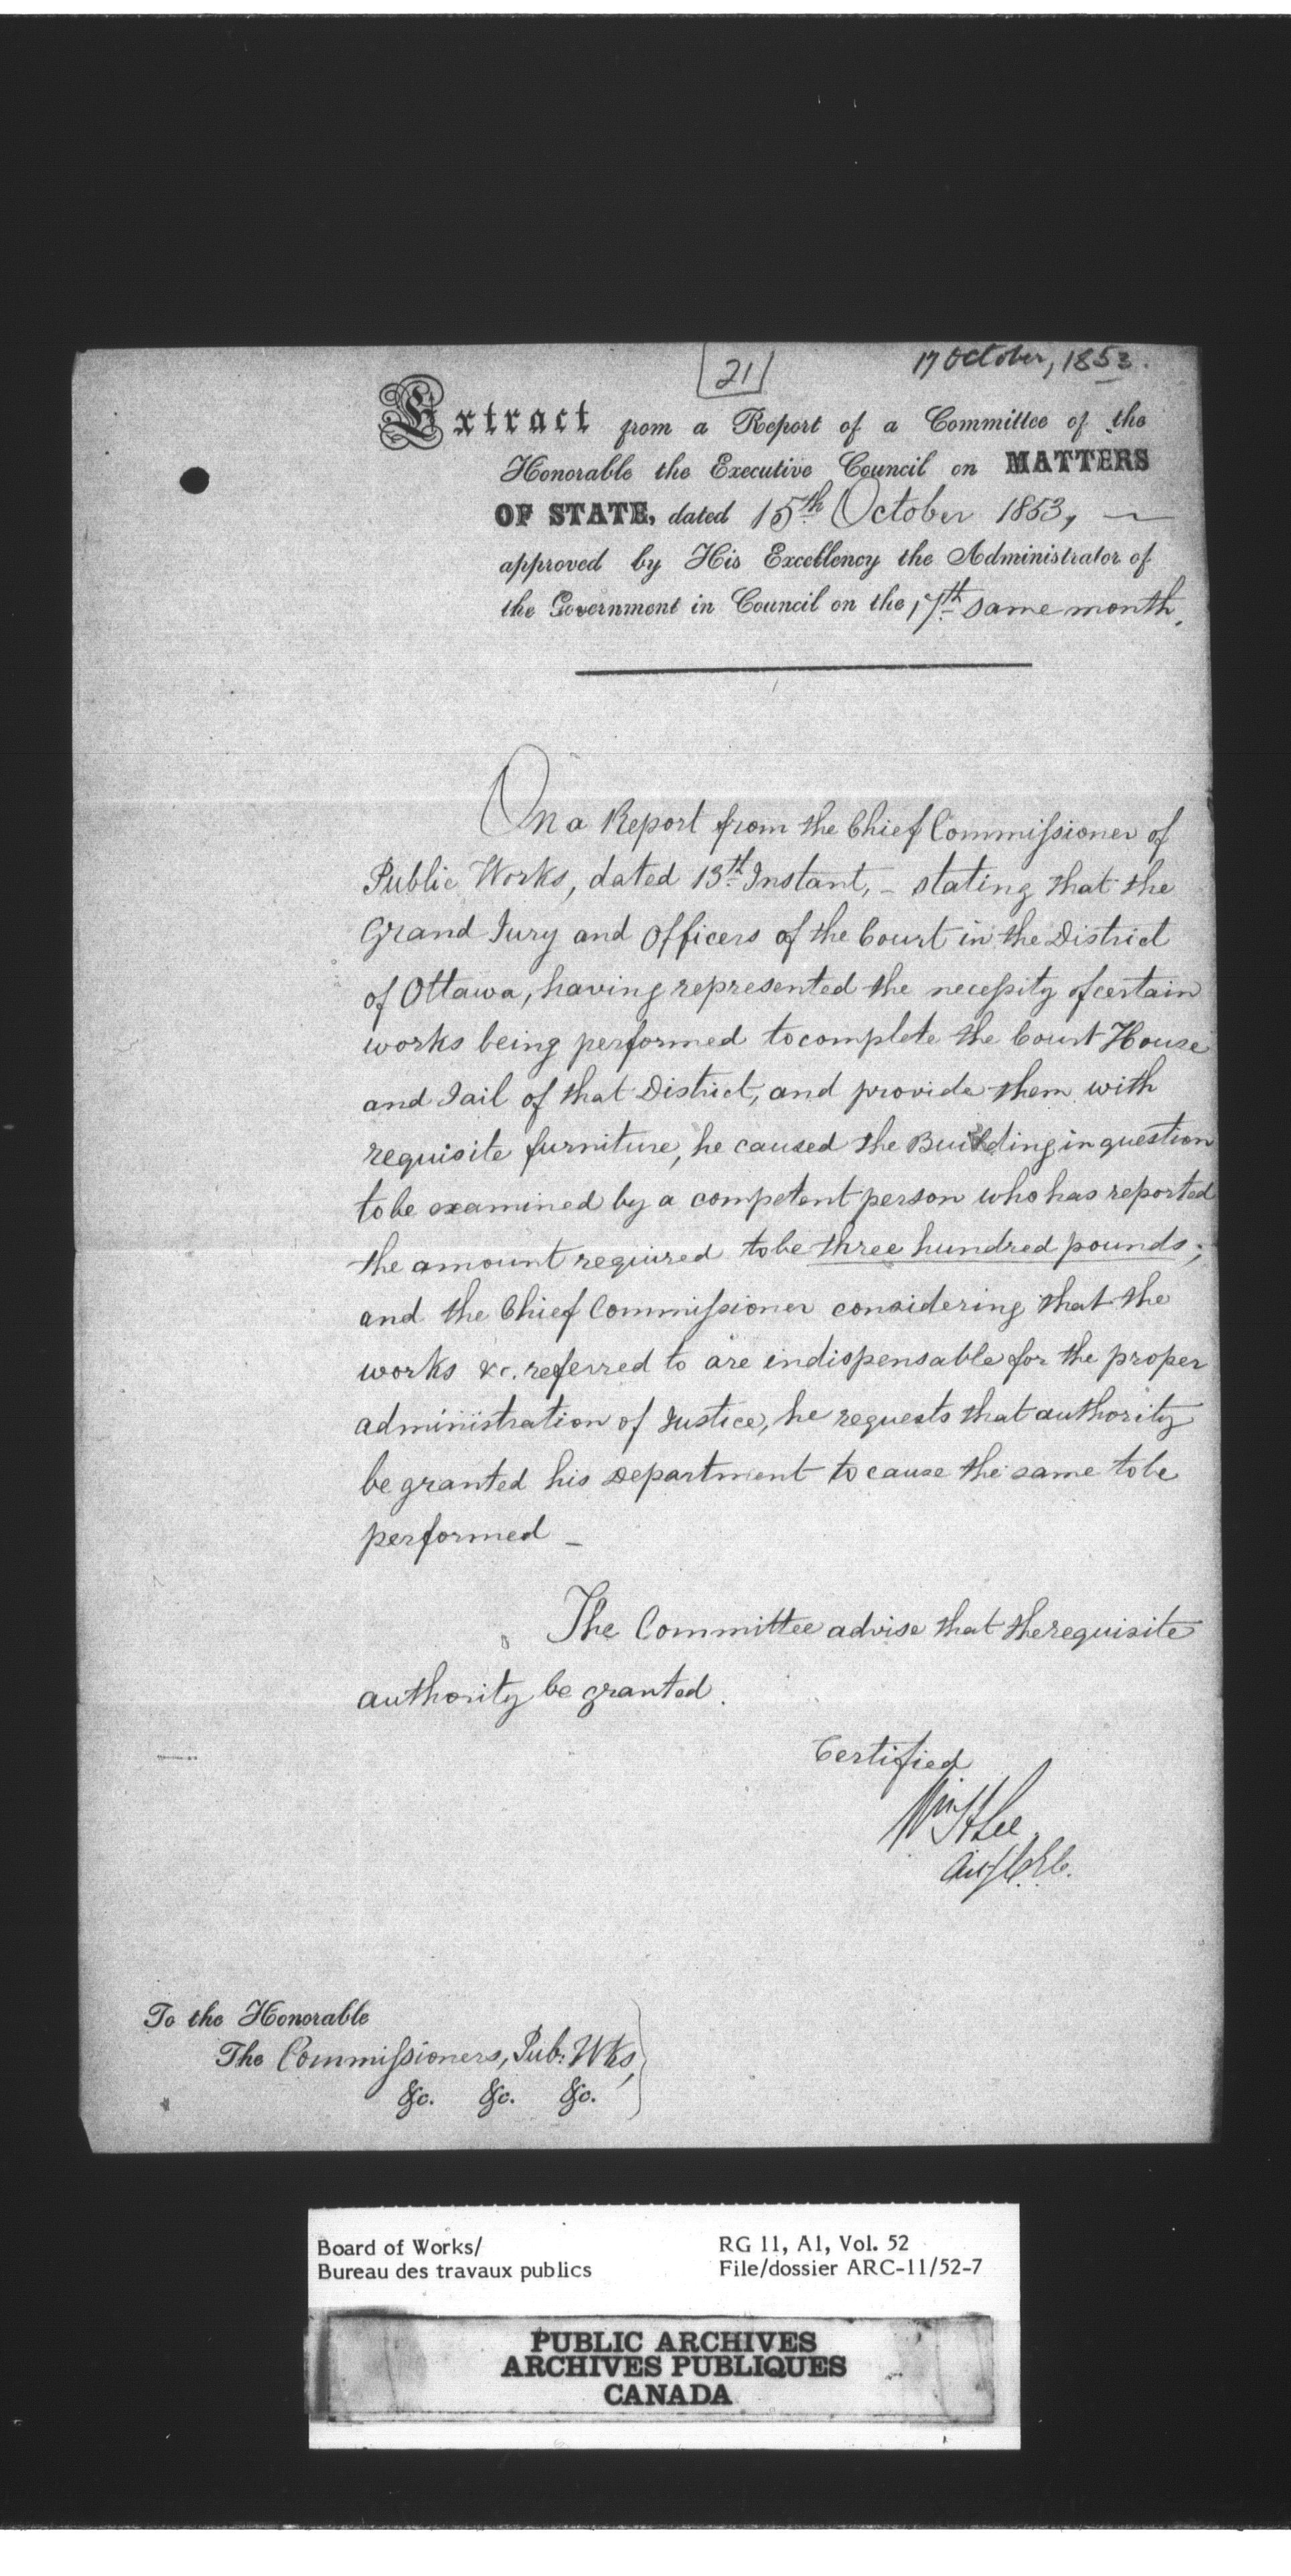 21
17 October, 1853.
Extract from a Report of a Committee of the
Honorable the Executive Council on MATTERS
OF STATE, dated 15th October 1853,
approved by His Excellency the Administrator of
the Government in Council on the 17th same month.
On a Report from the Chief Commissioner of
Public Works, dated 13th Instant, - stating that the
Grand Jury and Officers of the Court in the District
of Ottawa, having represented the necessity of certain
works being performed to complete the Court House
and Jail of that District, and provide them with
requisite furniture, he caused the Building in question
to be examined by a competent person who has reported
the amount required to be three hundred pounds;
and the Chief Commissioner considering that the
works &c. referred to are indispensable for the proper
administration of Justice, he requests that authority
be granted his Department to cause the same to be
performed -
The Committee advise that the requisite
authority be granted.
Certified
Wm H Lee
To the Honorable
The Commissioners, Pub: Wks,
&c. &c. &c.
Board of Works/
Bureau des travaux publics
RG 11, A1, Vol. 52
File/dossier ARC-11/52-7
PUBLIC ARCHIVES
ARCHIVES PUBLIQUES
CANADA